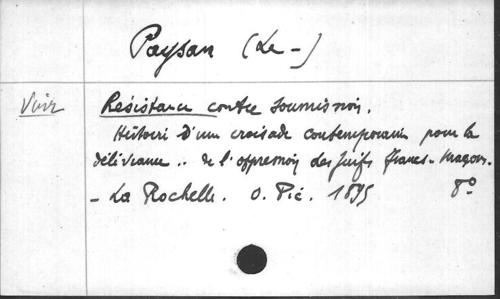 Paysan (Le -)
Voir Résistance contre soumission.
Histoire d'une croisade contemporaine pour la
délivrance .. de l'oppression des Juifs francs-maçons.
- La Rochelle. O. Pic. 1895 8°